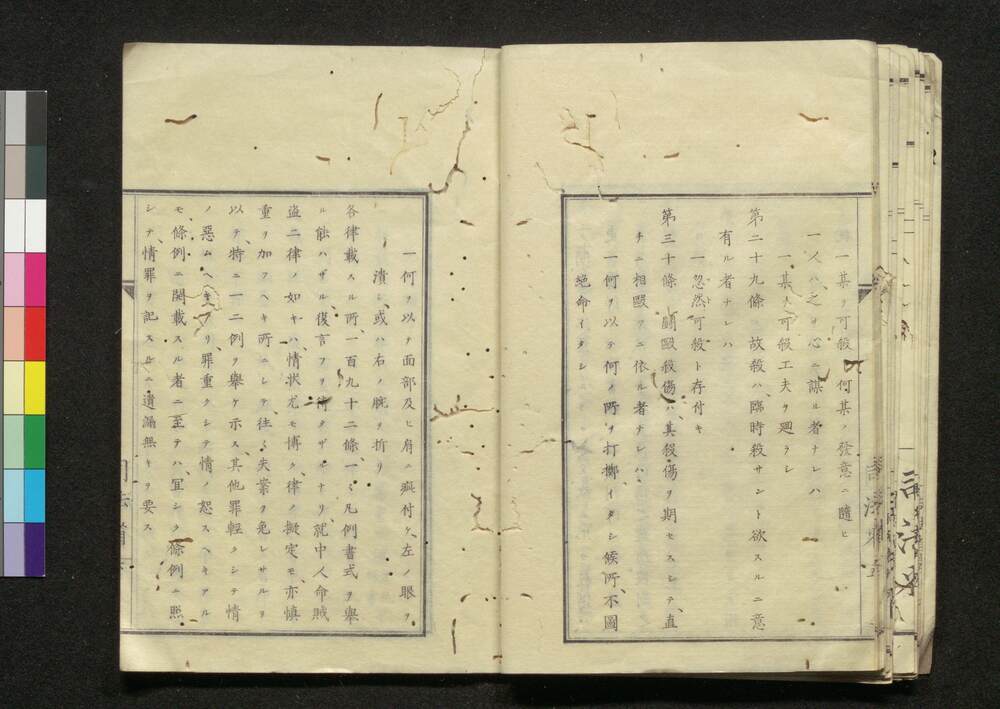 一某ヲ可殺ト何某ノ發意ニ隨ヒ
一人ハ之ヲ心ニ謀ル者ナレハ
一某ヲ可殺工夫ヲ廻ラシ
第二十九條 故殺ハ、臨時殺サント欲スルニ意
有ル者ナレハ
一忽然可殺ト存付キ
第三十條 鬪毆殺傷ハ、其殺傷ヲ期セスシテ、直
チニ相毆フニ依ル者ナレハ、
一何ヲ以テ何ノ所ヲ打擲イタシ候所、不圖
絶命イタシ
一何ヲ以テ面部及ヒ肩ニ疵付ケ、左ノ眼ヲ
潰シ、或ハ右ノ腕ヲ折リ
各律載スル所、一百九十二條、一々凡例書式ヲ擧
ル能ハザル、復言フヲ待タザルナリ、就中人命賊
盗二律ノ如キハ、情状尤モ博ク、律ノ擬定モ、亦愼
重ヲ加フヘキ所ニシテ、往々失案ヲ免レサルヲ
以テ、特ニ一二例ヲ擧ケ示ス、其他罪輕クシテ情
ノ惡ムヘキアリ、罪重クシテ情ノ恕スヘキアル
モ、條例ニ開載スル者ニ至テハ、宜シク條例ニ照
シテ、情罪ヲ記スルニ遺漏無キヲ要ス
司法省